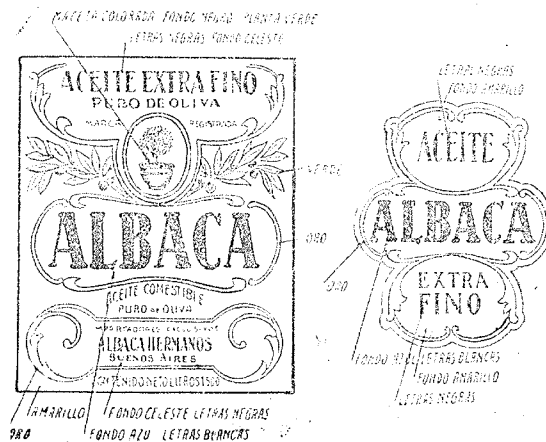 MACETA COLORADA FONDO NEGRO PLANTA VERDE
LETRAS NEGRAS FONDO CELESTE
ACEITE EXTRA FINO
PURO DE OLIVA
MARCA REGISTRADA
VERDE
ALBACA
ORO
ACEITE COMESTIBLE
PURO DE OLIVA
IMPORTADORES EXCLUSIVOS
ALBACA HERMANOS
BUENOS AIRES
CONTENIDO NETO LITROS 1.500
AMARILLO FONDO CELESTE LETRAS NEGRAS
ORO FONDO AZU LETRAS BLANCAS
LETRAS NEGRAS
FONDO AMARILLO
ACEITE
ALBACA
ORO
EXTRA
FINO
FONDO AZUL LETRAS BLANCAS
FONDO AMARILLO
LETRAS NEGRAS